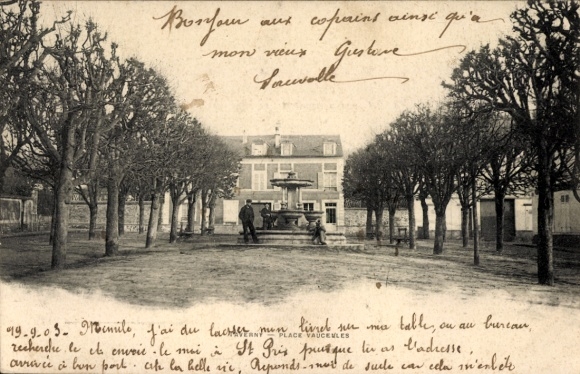 Bonjour aux copains ainsi qu'a
mon vieux Gustave
Sauvolle
TAVERNY — PLACE VAUCELLES
19-9-03- Memile, j'ai du laisser mon livret sur ma table, ou au bureau,
recherche le et envoie-le moi à St Prix puisque tu as l'adresse,
arrivée à bon port. la belle vie, Reponds-moi de suite car cela m'embête